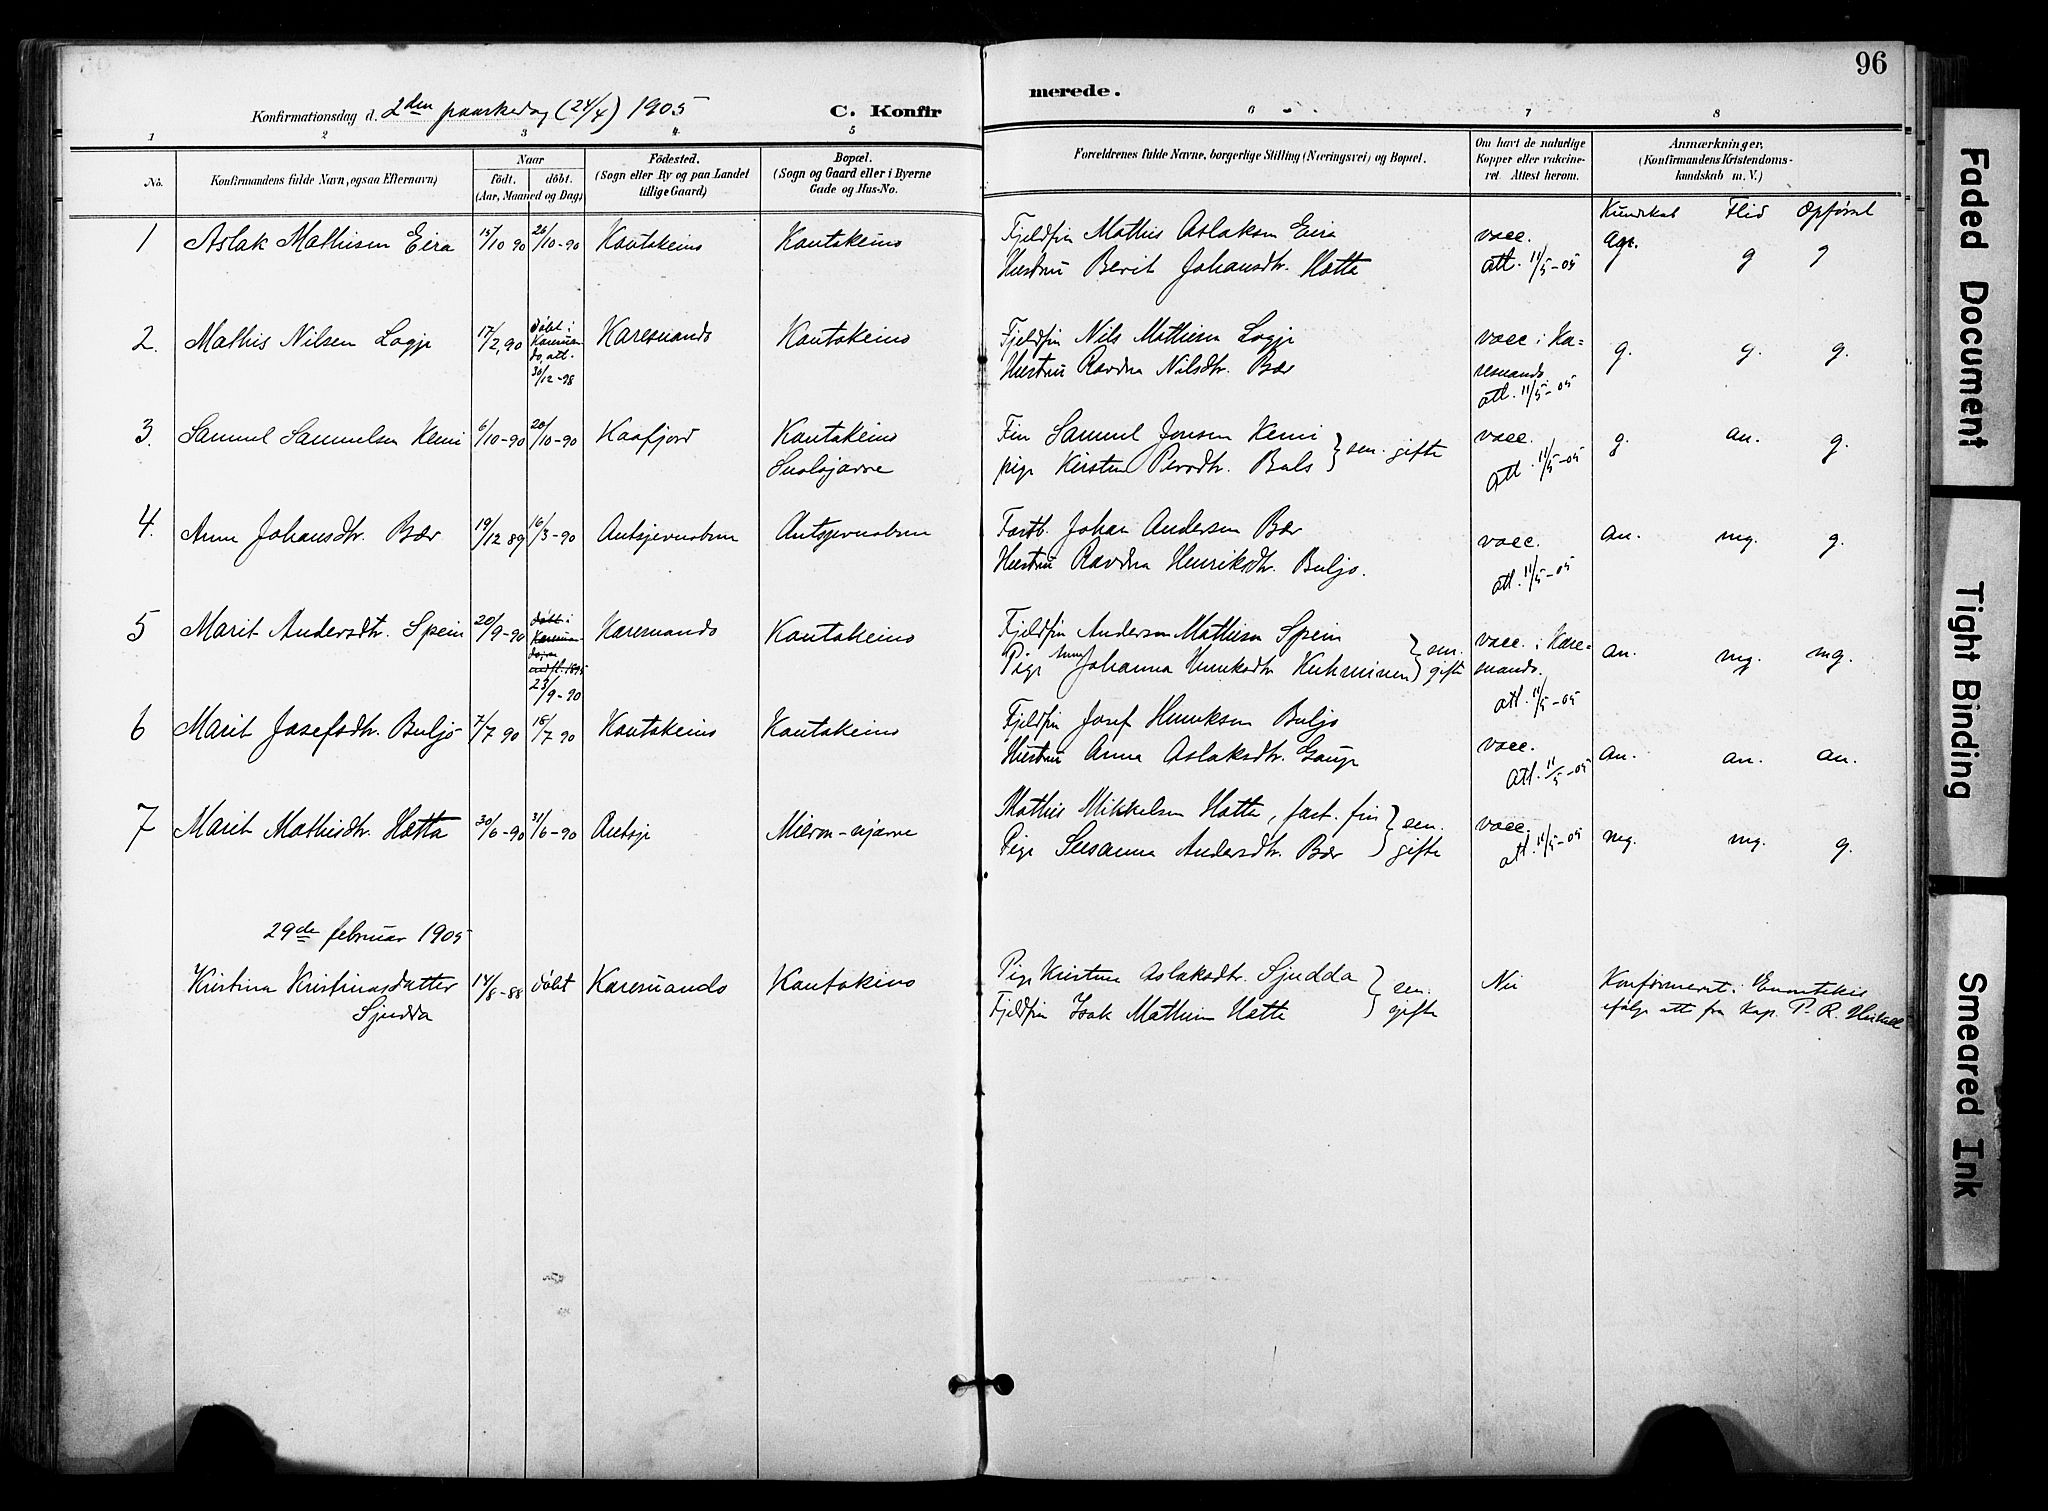 96
Konfirmationsdag d. 2den paaskedag (24/4) 1905
C. Konfirmerede.
1 2 3 4 5 6 7 8
No.
Konfirmandens fulde Navn, ogsaa Efternavn)
Naar
födt. döbt.
(Aar, Maaned og Dag)
Födested.
(Sogn eller By og paa Landet
tillige Gaard)
Bopæl.
(Sogn og Gaard eller i Byerne
Gade og Hus-No.
Forældrenes fulde Navne, borgerlige Stilling (Næringsvei) og Bopæl.
Om havt de naturlige
Kopper eller vakcine-
ret. Attest herom.
Anmærkninger.
(Konfirmandens Kristendoms-
kundskab m. V.)
Kundskab Flid Opførsel
1 Aslak Mathisen Eira 15/10 90 26/10-90 Kautokeino Kautokeino
Fjeldfin Mathis Aslaksen Eira
Hustru Berit Johansdtr. Hætta
vacc.
att. 11/5-05
g g
2. Mathis Nilsen Logje 17/2,90 døbt i
Karesuando, att. 30/12-98
Karesuando Kautokeino
Fjeldfin Nils Mathisen Logje
Hustru Ravdna Nilsdtr. Bær
vacc i Ka-
resuando
att. 11/5-05
g. g. g.
3. Samuel Samuelsen Kemi 6/10-90 20/10-90 Kaafjord Kautokeino
Suolojavre
Fin Samuel Jonsen Kemi
pige Kirsten Persdtr. Bals } sen. gifte
vacc.
att. 11/5-05
g. an. g.
4. Anne Johansdtr. Bær 19/12 89 16/3-90 Autsjevuobme Autsjevuobme
Fastb. Johan Andersen Bær
Hustru Ravdna Henriksdtr. Buljo.
vacc.
att. 11/5-05
an. mg. g.
5 Marit Andersdtr. Spein 20/9-90 døbt i
23/9-90
Karesuando Kautokeino
Fjeldfin Andersen Mathisen Spein
Pige Anne Johanna Henriksdtr Kuhmunen } sen. gifte
vacc. i Kare-
suando.
att. 11/5-05
an. mg. mg.
6 Marit Josefsdtr. Buljo 7/7 90 18/7 90 Kautokeino Kautokeino
Fjeldfin Josef Henriksen Buljo
Hustru Anna Aslaksdtr. Gaup
vacc.
att. 11/5-05
an. an. an.
7 Marit Mathisdtr. Hætta 30/6-90 31/6-90 Autsje Mieron-njavve
Mathis Mikkelsen Hætta, fast. fin
Pige Susanna Andersdtr. Bær } sen. gifte
vacc.
att. 11/5-05
mg. mg. g.
29de februar 1905
Kristina Kristinasdatter
Sjudda
14/8-88 døbt Karesuando Kautokeino
Pige Kristina Aslaksdtr. Sjudda
Fjeldfin Isak Mathisen Hætta } sen. gifte
Nei
Konfirmeret i Enontekis
ifølge att fra Kap. P. R.
Faded Document
Tight Binding
Smeared Ink